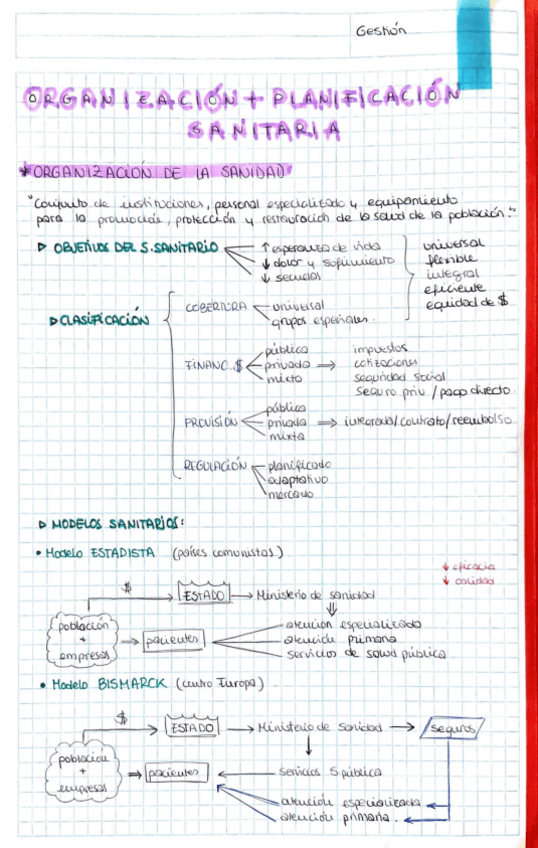 Gestión
ORGANIZACIÓN + PLANIFICACIÓN
SANITARIA
*ORGANIZACIÓN DE LA SANIDAD
"Conjunto de instituciones, personal especializado y equipamiento
para la promoción, protección y restauración de la salud de la población."
▷ OBJETIVOS DEL S. SANITARIO
↑ esperanza de vida
↓ dolor y sufrimiento
↓ secuelas
universal
flexible
integral
eficiente
equidad de $
▷ CLASIFICACIÓN
COBERTURA
universal
grupos especiales.
FINANC. $
público
privado
mixto
⇒ impuestos
cotizaciones
seguridad social
seguro priv / pago directo
PROVISIÓN
público
privada
mixta
⇒ integrada/contrato/reembolso
REGULACIÓN
planificado
adaptativo
mercado
▷ MODELOS SANITARIOS:
• Modelo ESTADISTA (países comunistas)
↓ eficacia
↓ calidad
$
ESTADO → Ministerio de sanidad
población
+
empresas
→ pacientes
atención especializada
atención primaria
servicios de salud pública
• Modelo BISMARCK (centro Europa)
$
ESTADO → Ministerio de Sanidad → seguros
población
+
empresas
⇒ pacientes
servicios S pública
atención especializada
atención primaria.